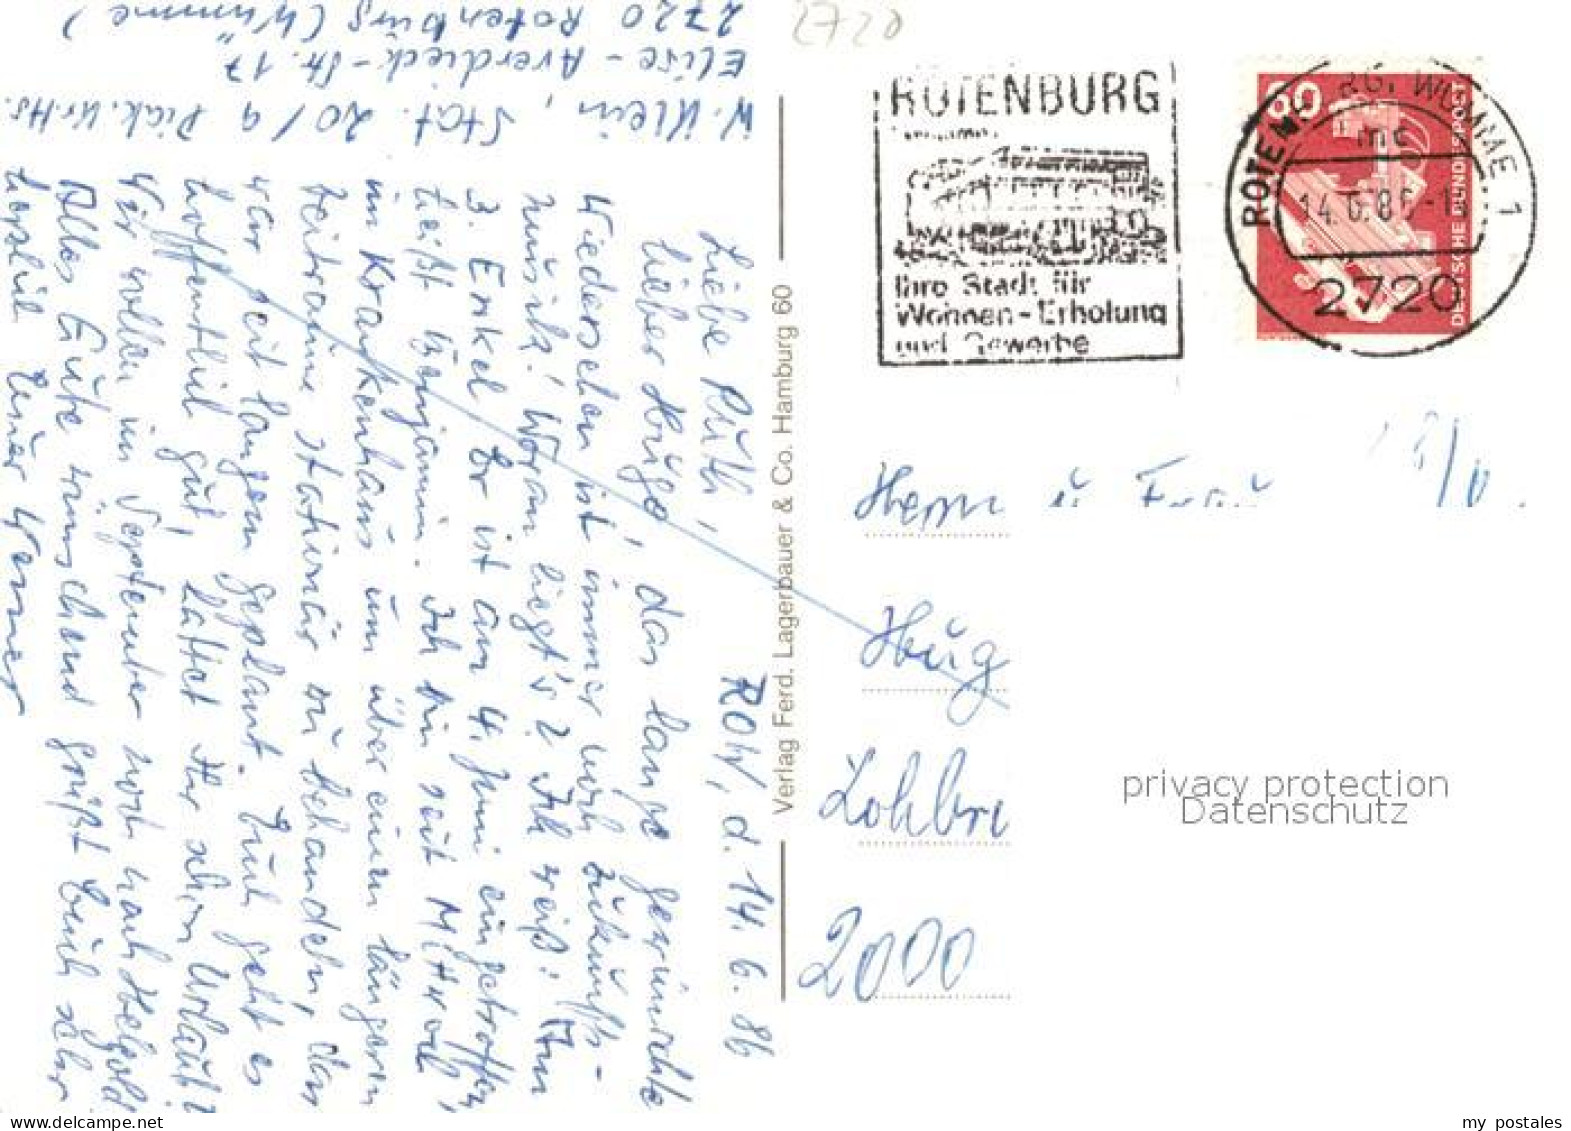 W. Klein, Stat. 20/9 Diak. Kr. Hs.
Elise-Averdieck-Str. 17
2720 Rotenburg (Wümme)
ROW, d. 14. 6. 86
Liebe Ruth,
lieber Hugo, das lange gewünschte
Wiedersehen ist immer noch Zukunfts-
musik! Woran liegt's? Ich weiß: Am
3. Enkel. Er ist am 4. Juni eingetroffen,
heißt Benjamin. Ich bin seit Mittwoch
im Krankenhaus um über einen längeren
Zeitraum stationär zu behandeln, das
war seit langem geplant. Euch geht es
hoffentlich gut, hattet Ihr schon Urlaub?
Wir wollen im September noch nach Helgoland
Alles Gute wünschend grüßt Euch sehr
herzlich Euer Werner
Verlag Ferd. Lagerbauer & Co. Hamburg 60
2720
ROTENBURG
Ihre Stadt für
Wohnen-Erholung
und Gewerbe
80
DEUTSCHE BUNDESPOST
ROTENBURG, WÜMME 1
mc
14.6.86-15
2720
Herrn u Frau
Hug
Lohbr
2000
privacy protection
Datenschutz
my postales